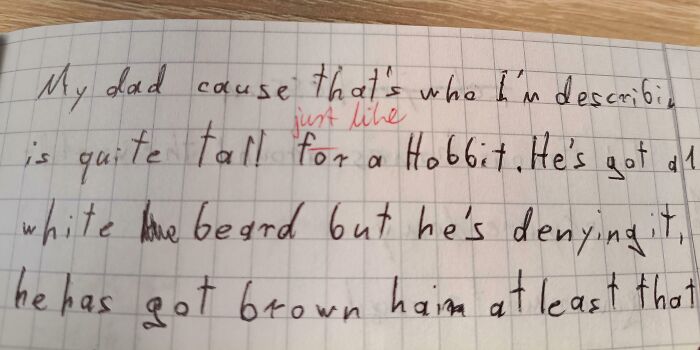 My dad cause that's who I'm describin
just like
is quite tall for a Hobbit. He's got al
white beard but he's denying it,
he has got brown hair at least that